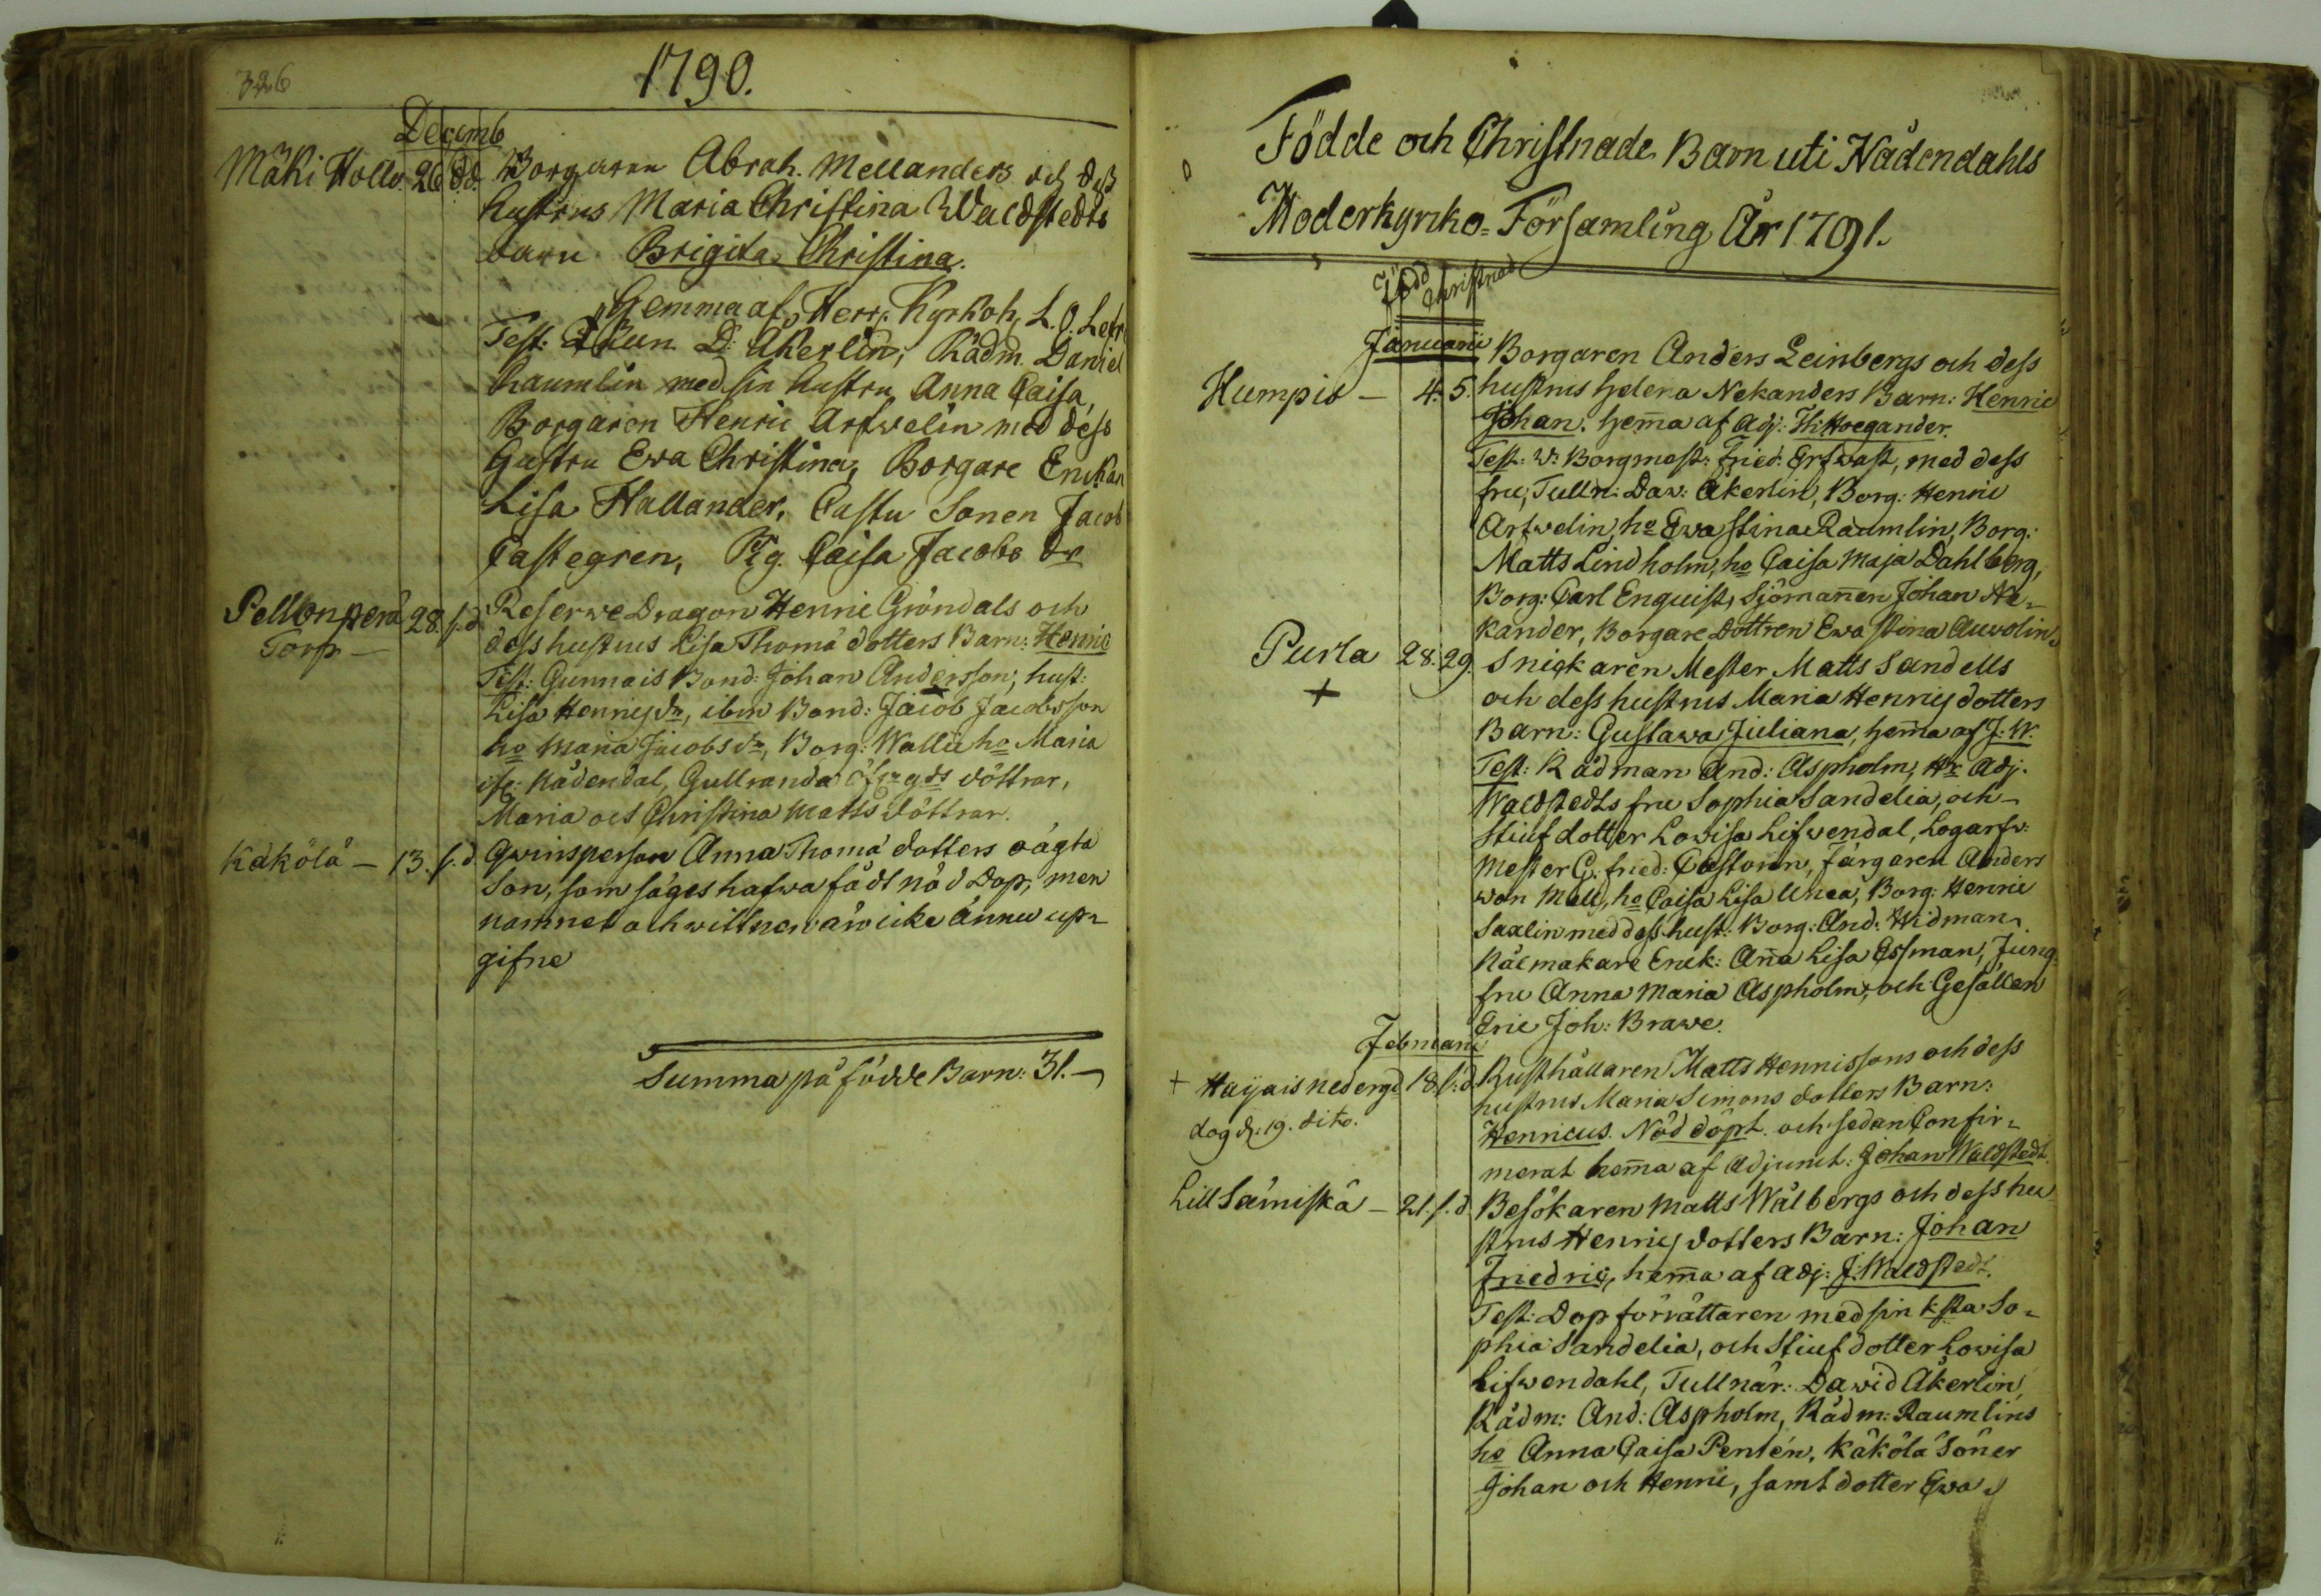 326
1790.
Decemb
Mäki Hollo 26 d.d. Borgaren Abrah. Mellanders och dess
hustrus Maria Christina Waldstedts
barn Brigita Christina.
Hemma af Herr Kyrkoh, L. O. Lefr
Test: D: Åkerlin, Rådm. Daniel
Raumlin med sin hustru Anna Caisa,
Borgaren Henric Arfwelin med dess
Hustru Eva Christina, Borgare Enckan
Lisa Hallander, Castu Sonen Jacob
Castegren, Pig. Caisa Jacobs dr
Pellonperä 28. s.d. Reserwe Dragon Henric Gröndals och
Torp — dess hustrus Lisa Thomä dotters Barn: Henric
Test: Gunnais Bond: Johan Andersson, hust:
Lisa Henricsdr, ibm Bond: Jacob Jacobsson
ho Maria Jacobsdr, Borg: Wallii ho Maria
Nådendal, Gullranda döttrar,
Maria och Christina Matts döttrar.
Käkölä — 13. s.d. Qwinsperson Anna Thomä dotters oägta
Son, som säges hafwa fådt nöd Dop, men
namnet och wittnen äro icke ännu up=
gifne
Summa på födde Barn: 31. —
Födde och Christnade Barn uti Nådendahls
Moderkyrko=Församling År 1791.
Född Christnad
Januarii
Borgaren Anders Leinbergs och dess
Humpis — 4. 5. hustrus Helena Nekanders Barn: Henric
Johan. hem̄a af Adj: H: Hoegander.
Test: W: Borgmest: Fried: Erfwast, med dess
fru, Tulln: Daw: Åkerlin, Borg: Henric
Arfwelin, ho Ewa Stina Raumlin, Borg:
Matts Lindholm, ho Caisa Maja Dahlberg,
Borg: Carl Enquist, Sjöman̄en Johan Ne=
kander, Borgare Dottren Ewa Stina Auwolin
Purla 28. 29. Snickaren Mester Matts Sandells
+ och dess hustrus Maria Henrics dotters
Barn: Gustawa Juliana, hem̄a af J: W.
Test: Rådman And: Aspholm, Hr Adj.
Waldstedts fru Sophia Sandelia, och
Stiuf dotter Lowisa Lifwendal, Logarfw:
Mester G. Fried: Castorin, färgaren Anders
won Mell, ho Caisa Lisa Unea, Borg: Henric
Saxlin med dess hust: Borg: And: Widman
Nålmakare Enck: An̄a Lisa Essman, Jung=
fru Anna Maria Aspholm, och Gesällen
Eric Joh: Brawe.
Februarii
+ Haijais nedergd 18. s.d. Rusthållaren Matts Henrissons och dess
dog d: 19. dito. hustrus Maria Simons dotters Barn:
Henricus. Nöd döpt. och sedan Confir=
merat hem̄a af Adjunct: Johan Waldstedt.
Lill Säniskä — 21. s.d. Besökaren Matts Wålbergs och dess hu
strus Henrics dotters Barn: Johan
Friedric, hem̄a af Adj: J: Waldstedt.
Test: Dop förrättaren med sin k sta So=
phia Sandelia, och Stiuf dotter Lowisa
Lifwendahl, Tullnär: Dawid Åkerlin,
Rådm: And: Aspholm, Rådm: Raumlins
ho Anna Caisa Pentén, Käkölä Söner
Johan och Henric, samt dotter Ewa